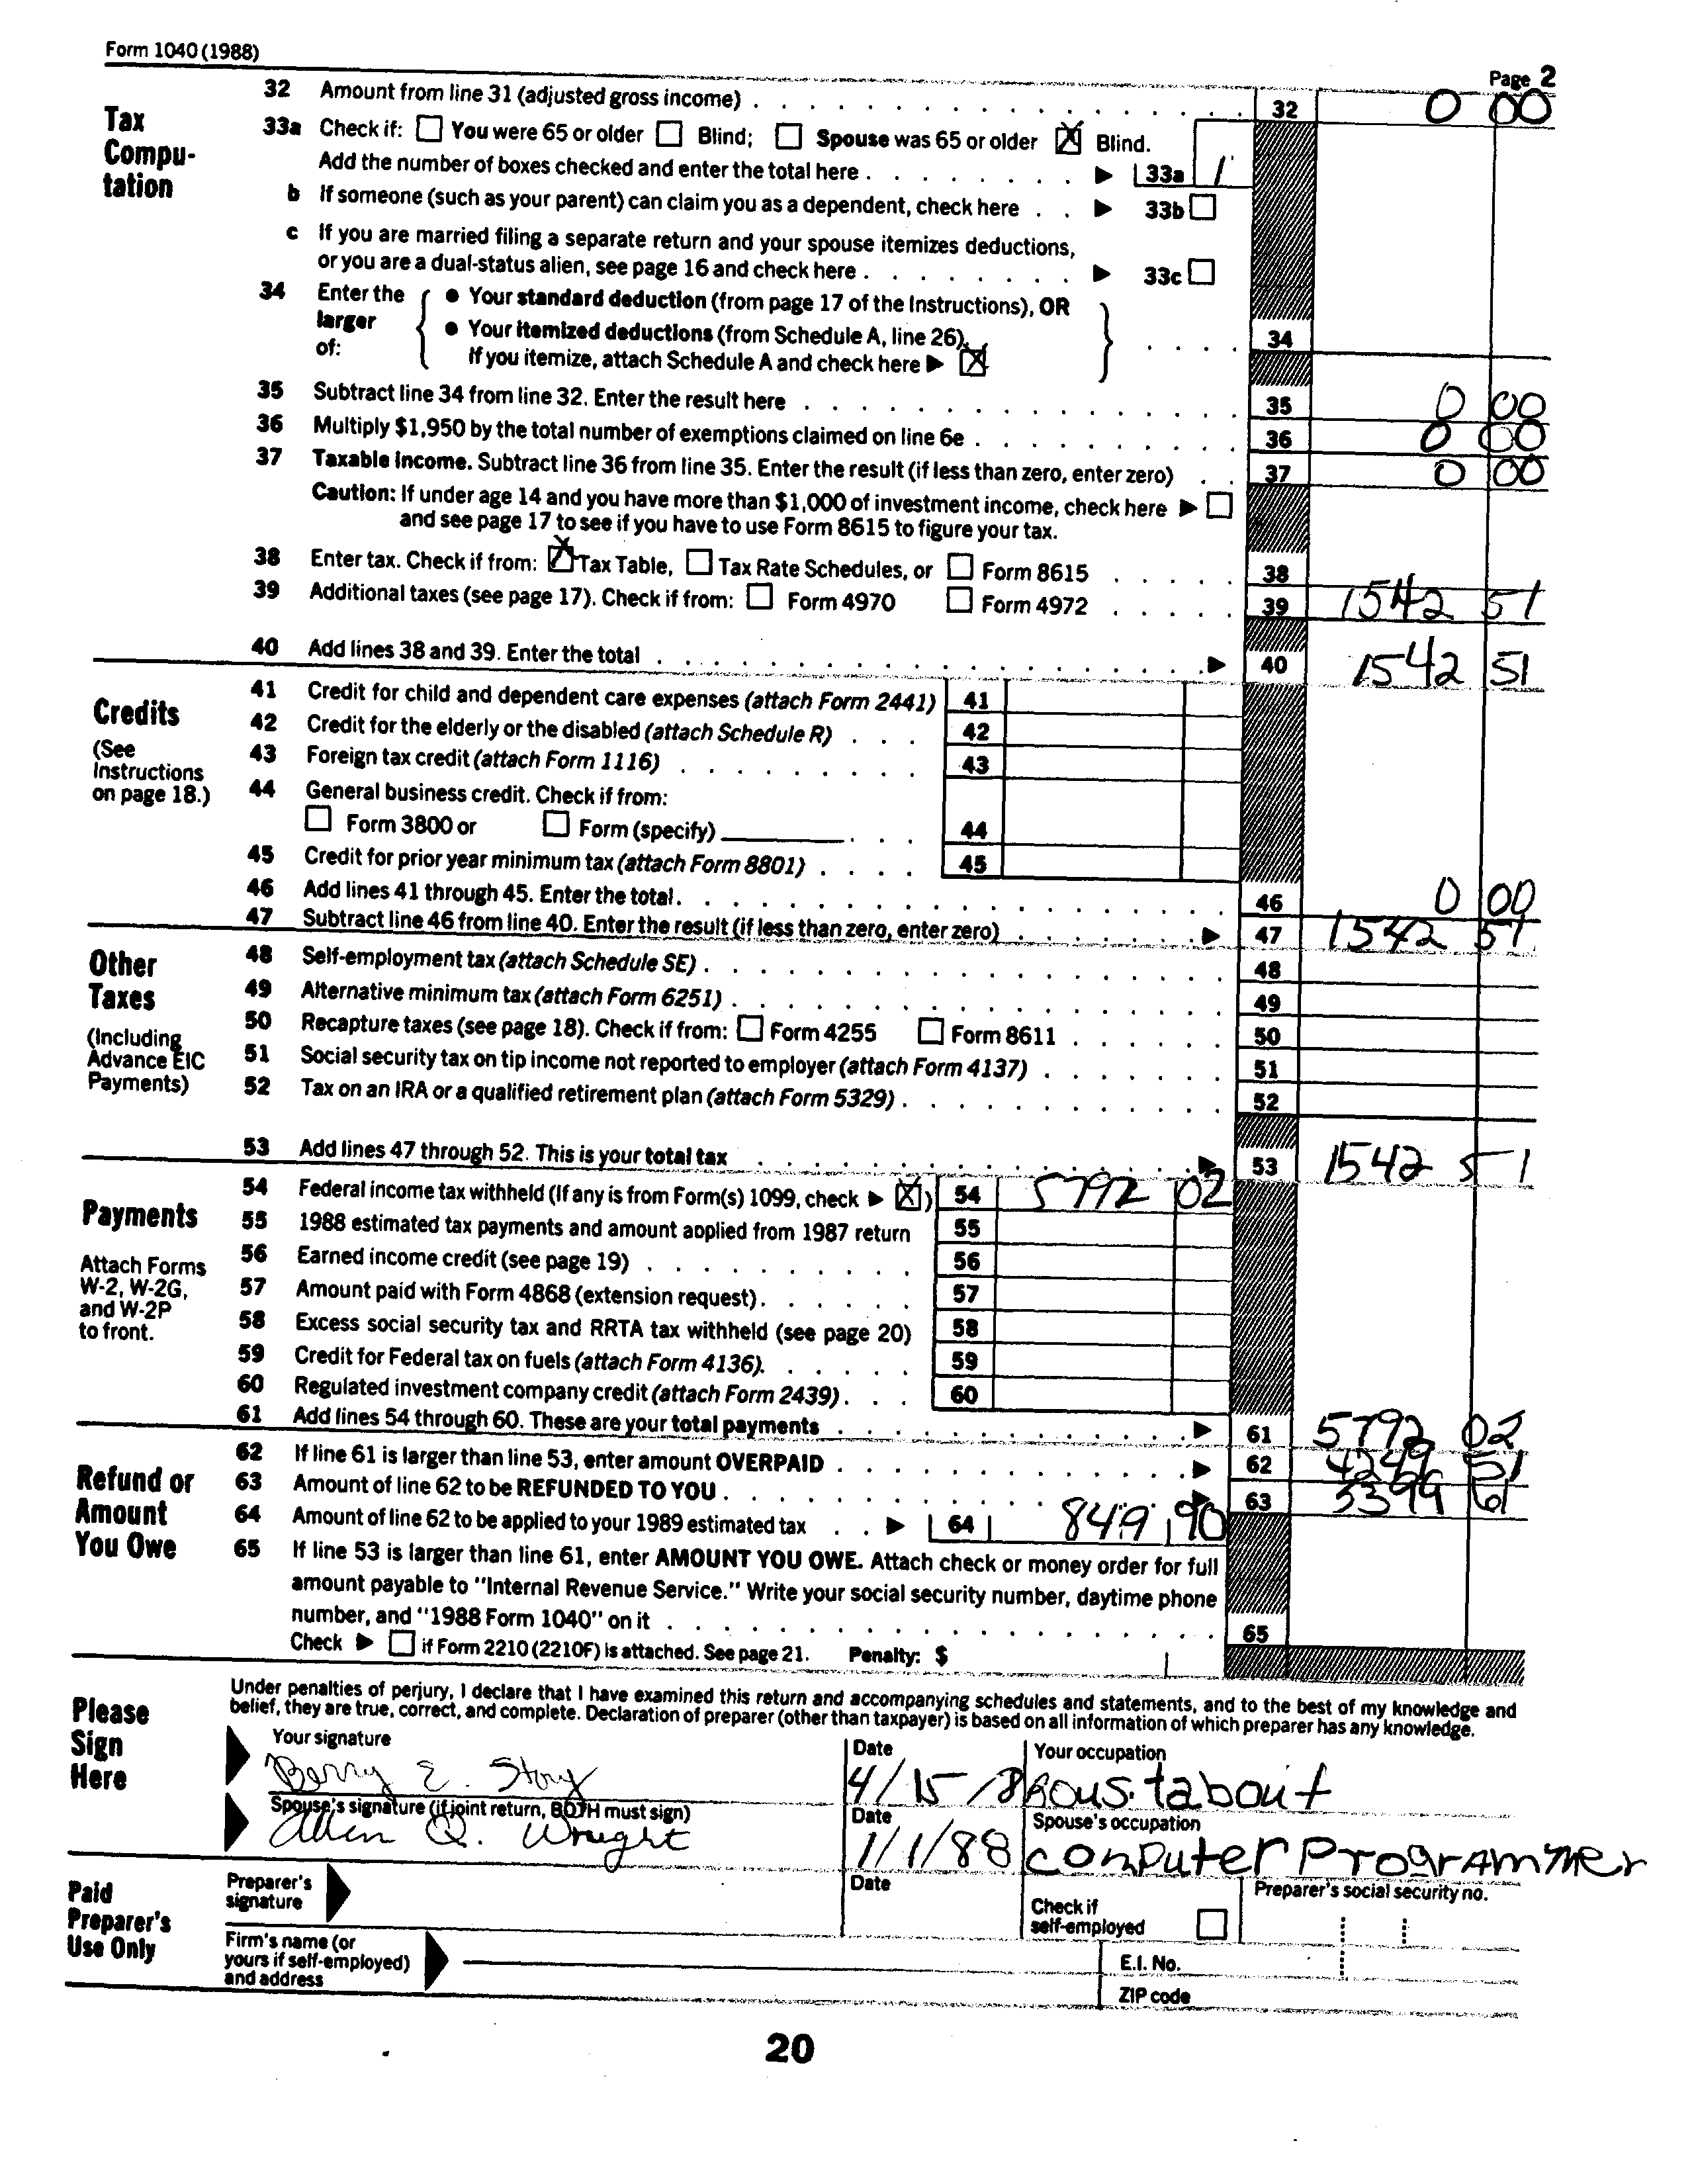 Form 1040 (1988)
Page 2
Tax Compu-tation
32 Amount from line 31 (adjusted gross income) . . . 32 0 00
33a Check if: ☐ You were 65 or older ☐ Blind; ☐ Spouse was 65 or older ☒ Blind.
Add the number of boxes checked and enter the total here . . . ▶ 33a 1
b If someone (such as your parent) can claim you as a dependent, check here . . ▶ 33b ☐
c If you are married filing a separate return and your spouse itemizes deductions,
or you are a dual-status alien, see page 16 and check here . . . ▶ 33c ☐
34 Enter the larger of: { ● Your standard deduction (from page 17 of the Instructions), OR
● Your itemized deductions (from Schedule A, line 26).
If you itemize, attach Schedule A and check here ▶ ☒ } . . . . 34
35 Subtract line 34 from line 32. Enter the result here . . . 35 0 00
36 Multiply $1,950 by the total number of exemptions claimed on line 6e . . . 36 0 00
37 Taxable income. Subtract line 36 from line 35. Enter the result (if less than zero, enter zero) . . 37 0 00
Caution: If under age 14 and you have more than $1,000 of investment income, check here ▶ ☐
and see page 17 to see if you have to use Form 8615 to figure your tax.
38 Enter tax. Check if from: ☒ Tax Table, ☐ Tax Rate Schedules, or ☐ Form 8615 . . . . . 38
39 Additional taxes (see page 17). Check if from: ☐ Form 4970 ☐ Form 4972 . . . . . 39 1542 51
40 Add lines 38 and 39. Enter the total . . . ▶ 40 1542 51
Credits
(See Instructions on page 18.)
41 Credit for child and dependent care expenses (attach Form 2441) 41
42 Credit for the elderly or the disabled (attach Schedule R) . . . 42
43 Foreign tax credit (attach Form 1116) . . . 43
44 General business credit. Check if from:
☐ Form 3800 or ☐ Form (specify) . . . 44
45 Credit for prior year minimum tax (attach Form 8801) . . . . 45
46 Add lines 41 through 45. Enter the total. . . . 46 0 00
47 Subtract line 46 from line 40. Enter the result (if less than zero, enter zero) . . . ▶ 47 1542 51
Other Taxes
(Including Advance EIC Payments)
48 Self-employment tax (attach Schedule SE) . . . 48
49 Alternative minimum tax (attach Form 6251) . . . 49
50 Recapture taxes (see page 18). Check if from: ☐ Form 4255 ☐ Form 8611 . . . 50
51 Social security tax on tip income not reported to employer (attach Form 4137) . . . 51
52 Tax on an IRA or a qualified retirement plan (attach Form 5329) . . . 52
53 Add lines 47 through 52. This is your total tax . . . ▶ 53 1542 51
Payments
Attach Forms W-2, W-2G, and W-2P to front.
54 Federal income tax withheld (If any is from Form(s) 1099, check ▶ ☒) 54 5792 02
55 1988 estimated tax payments and amount applied from 1987 return 55
56 Earned income credit (see page 19) . . . 56
57 Amount paid with Form 4868 (extension request). . . . 57
58 Excess social security tax and RRTA tax withheld (see page 20) 58
59 Credit for Federal tax on fuels (attach Form 4136). . . . 59
60 Regulated investment company credit (attach Form 2439) . . . 60
61 Add lines 54 through 60. These are your total payments . . . ▶ 61 5792 02
Refund or Amount You Owe
62 If line 61 is larger than line 53, enter amount OVERPAID . . . ▶ 62 4249 51
63 Amount of line 62 to be REFUNDED TO YOU . . . ▶ 63 3399 61
64 Amount of line 62 to be applied to your 1989 estimated tax . . ▶ 64 849 90
65 If line 53 is larger than line 61, enter AMOUNT YOU OWE. Attach check or money order for full
amount payable to "Internal Revenue Service." Write your social security number, daytime phone
number, and "1988 Form 1040" on it . . . 65
Check ▶ ☐ if Form 2210 (2210F) is attached. See page 21. Penalty: $
Please Sign Here
Under penalties of perjury, I declare that I have examined this return and accompanying schedules and statements, and to the best of my knowledge and
belief, they are true, correct, and complete. Declaration of preparer (other than taxpayer) is based on all information of which preparer has any knowledge.
Your signature Date Your occupation
Berry E. Story 4/15/8 Roustabout
Spouse's signature (if joint return, BOTH must sign) Date Spouse's occupation
Allen Q. Wright 1/1/88 computer Programmer
Paid Preparer's Use Only
Preparer's signature Date Check if self-employed ☐ Preparer's social security no.
Firm's name (or yours if self-employed) and address
E.I. No.
ZIP code
20